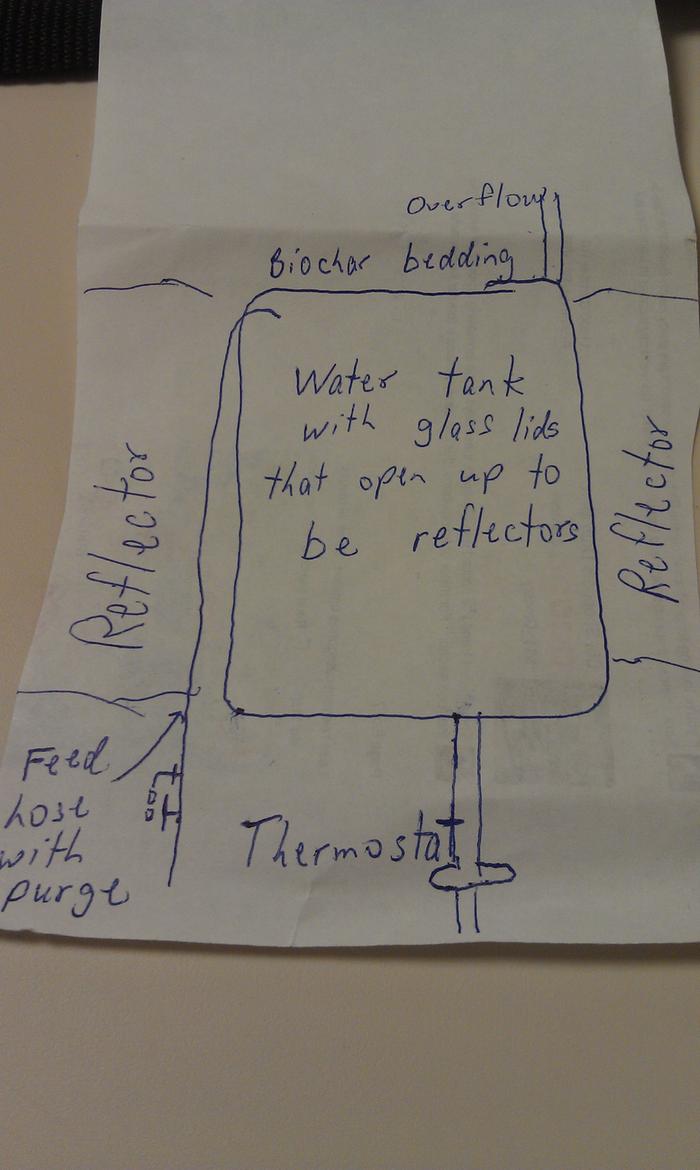 Overflow
Biochar bedding
Water tank
with glass lids
that open up to
be reflectors
Reflector
Reflector
Feed
hose
with
purge
Thermostat